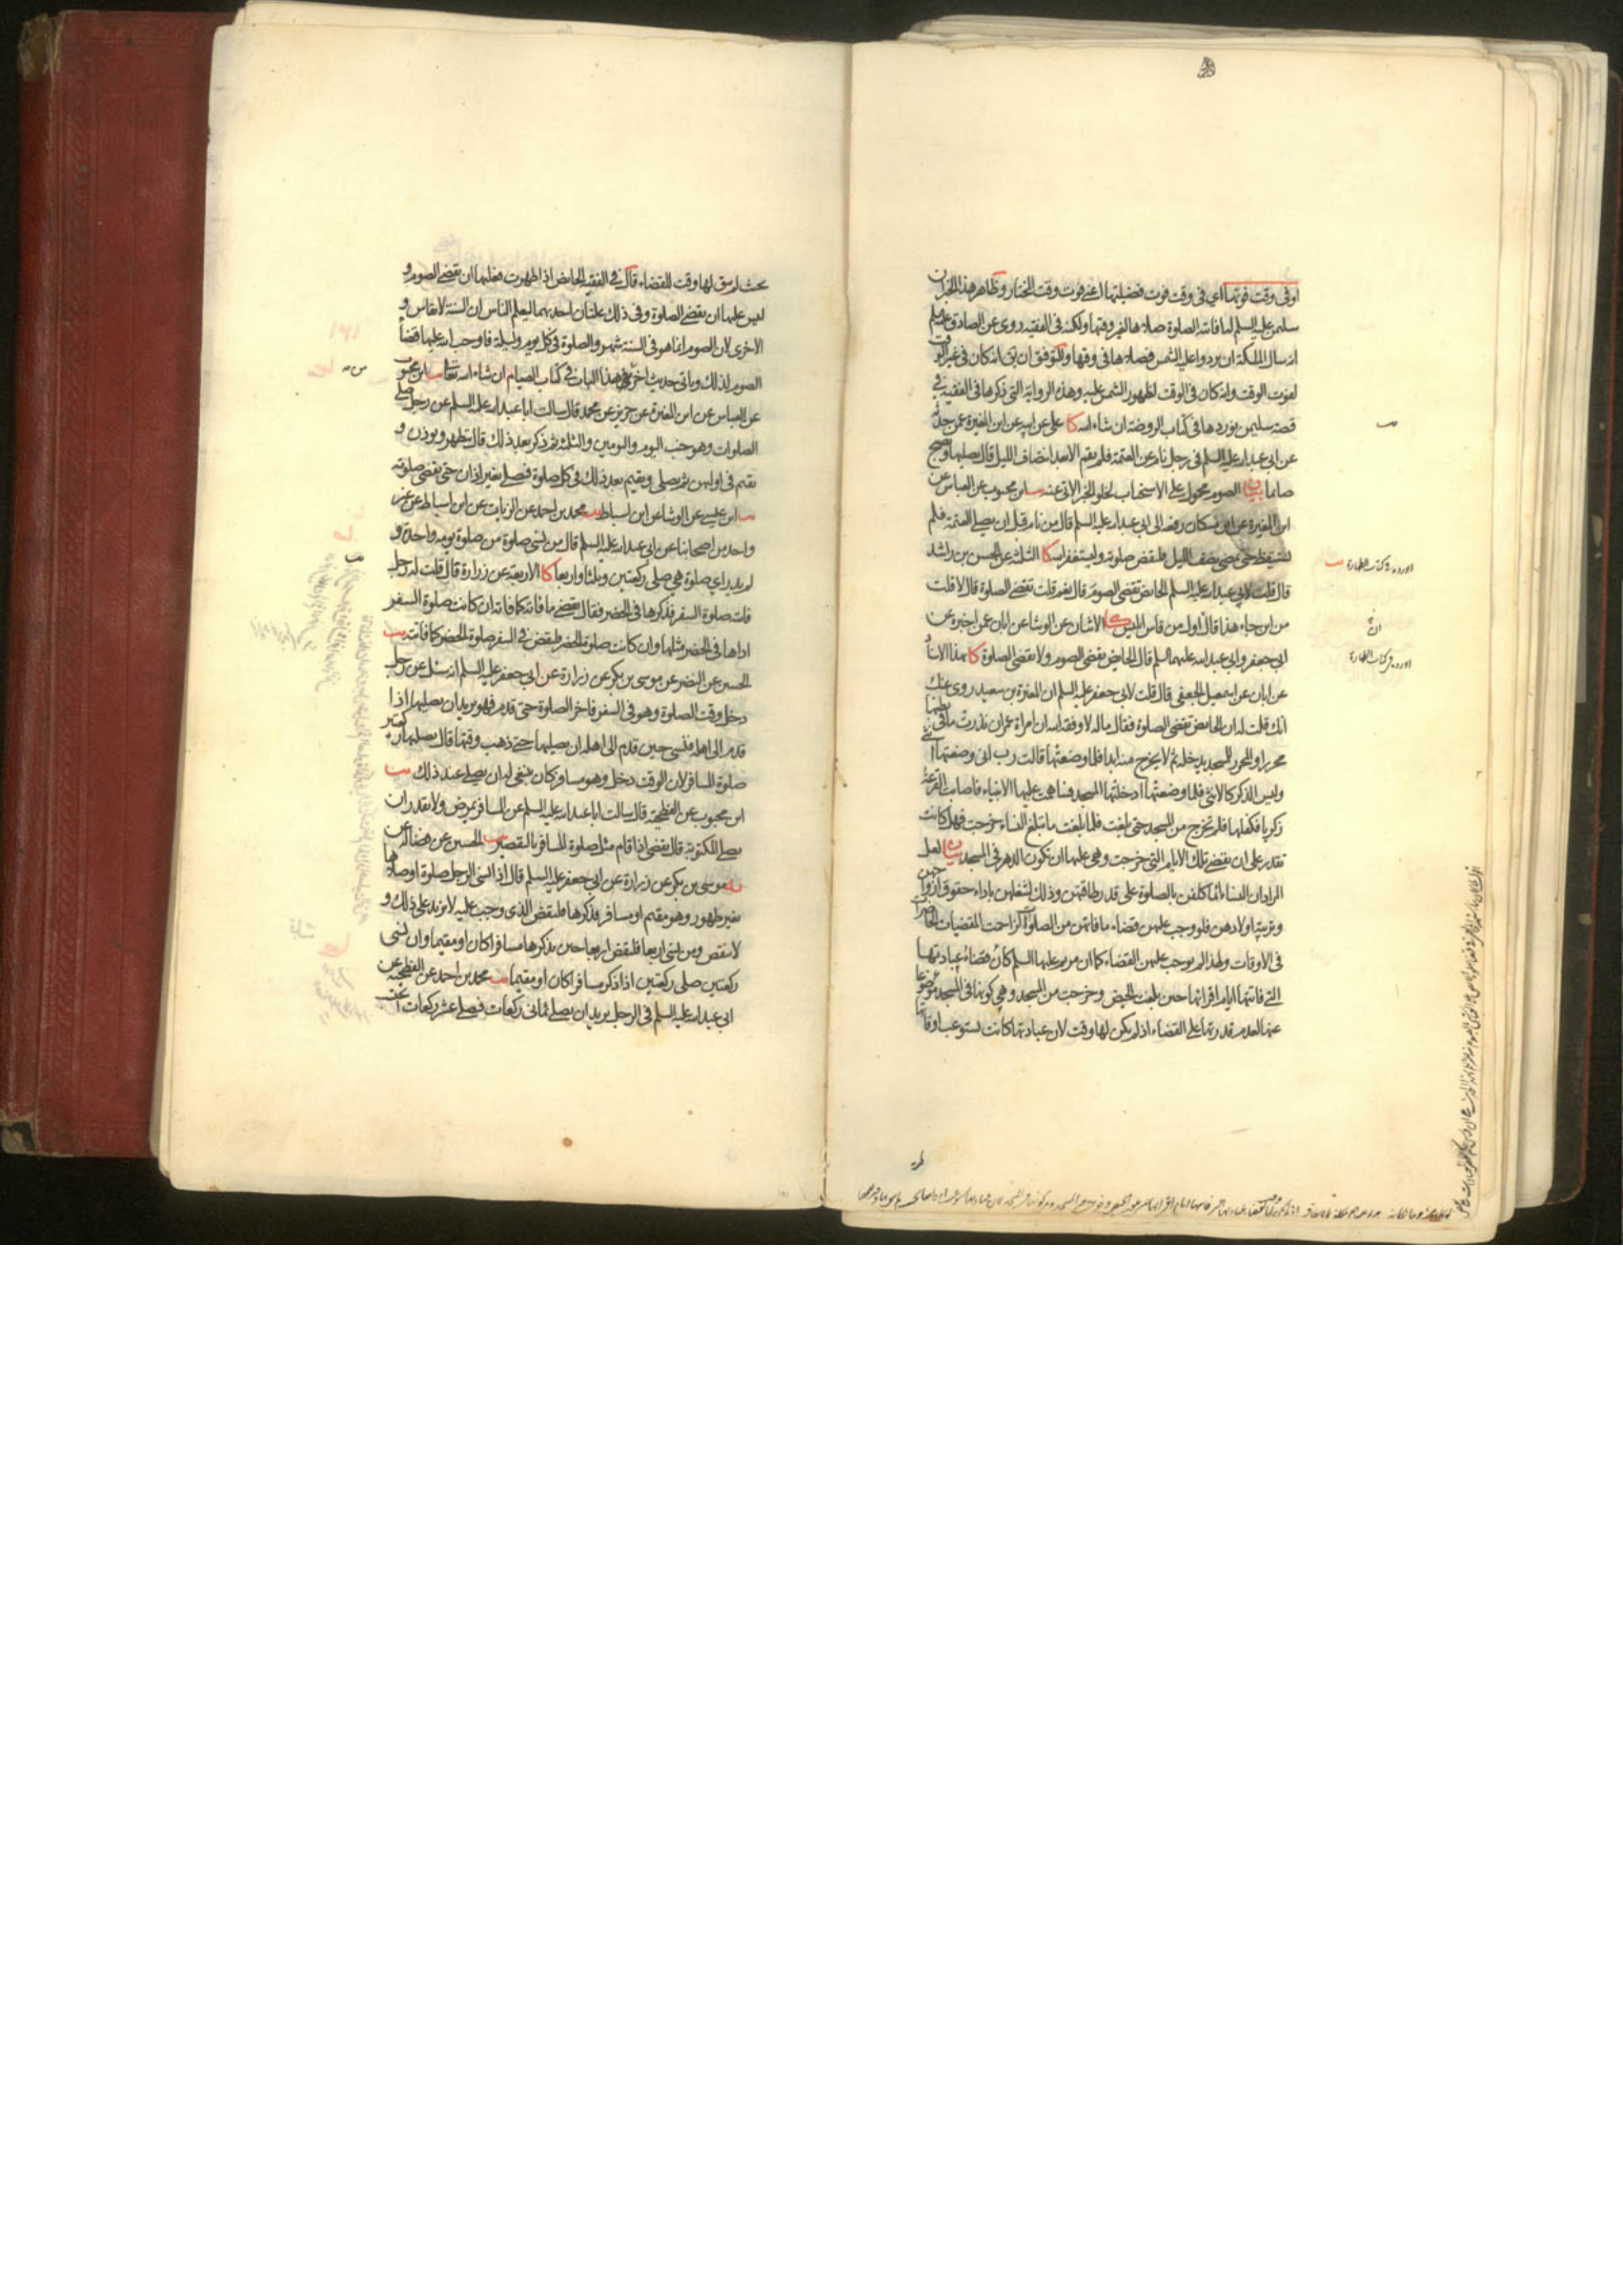 او فى وقت فوتها اي فى وقت فوت فضيلتها اعنى فوت وقت المختار وظاهر هذا الخبر ان
سليمن عليه السلم لما فاتته الصلوة صلاها لغير وقتها ولكنه فى الفقيه روى عن الصادق عليه السلم
انه سال الملئكة ان يردوا عليه الشمس فصلاها فى وقتها والتوفيق ان يق انه كان فى غير الوقت
لفوت الوقت وانه كان فى الوقت لظهور الشمس عليه وهذه الرواية التى ذكرها فى الفقيه فى
قصة سليمن نوردها فى كتاب الروضة ان شاء الله كا على عن ابيه عن ابن المغيرة عمن حدثه
عن ابى عبدالله عليه السلم فى رجل نام عن العتمة فلم يقم الا بعد انتصاف الليل قال يصليها ويصبح
صائما بيان الصوم محمول على الاستحباب لخلو الخبر الاتى عنه يب ابن محبوب عن العباس عن
ابن المغيرة عن ابن مسكان رفعه الى ابى عبدالله عليه السلم قال من نام قبل ان يصلى العتمة فلم
يستيقظ حتى يمضى نصف الليل فليقض صلوته وليستغفر الله كا الثلثة عن الحسن بن راشد
قال قلت لابى عبدالله عليه السلم الحائض تقضى الصوم قال نعم قلت تقضى الصلوة قال لا قلت
من اين جاء هذا قال اول من قاس ابليس كا الاثنان عن الوشا عن ابان عن اخبره عن
ابى جعفر وابى عبدالله عليهما السلم قال الحايض تقضى الصوم ولا تقضى الصلوة كا بهذا الاسناد
عن ابان عن اسمعيل الجعفى قال قلت لابى جعفر عليه السلم ان المغيرة بن سعيد روى عنك
انك قلت له ان الحايض تقضى الصلوة فقال ماله لا وفقه الله ان امراة عمران نذرت ما فى بطنها
محررا والمحرر للمسجد يدخله ثم لا يخرج منه ابدا فلما وضعتها قالت رب انى وضعتها انثى
وليس الذكر كالانثى فلما وضعتها ادخلتها المسجد فساهمت عليها الانبياء فاصابت القرعة
زكريا فكفلها فلم تخرج من المسجد حتى بلغت فلما بلغت ما تبلغ النساء خرجت فهل كانت
تقدر على ان تقضى تلك الايام التى خرجت وهى عليها ان تكون الدهر فى المسجد بيان لعل
المراد ان النساء انما كلفن بالصلوة على قدر طاقتهن وذلك لشغلهن باداء حقوق ازواجهن
وتربية اولادهن فلو وجب عليهن قضاء ما فاتهن من الصلوات لزاحمت المقضيات الحاضرات
فى الاوقات ولهذا لم يوجب عليهن القضاء كما ان مريم عليها السلم كان قضاء عبادتها
التى فاتتها ايام اقرائها حين بلغت الحيض وخرجت من المسجد وهى كونها فى المسجد موضوعا
عنها لعدم قدرتها على القضاء اذ لم يكن لها وقت لان عبادتها كانت تستوعب اوقاتها
اورده فى كتاب الطهارة
اورده فى كتاب الطهارة
بحيث لم يبق لها وقت للقضاء قال فى الفقيه الحايض اذا طهرت فعليها ان تقضى الصوم و
ليس عليها ان تقضى الصلوة وفى ذلك علتان احديهما ليعلم الناس ان السنة لا تقاس و
الاخرى لان الصوم انما هو فى السنة شهر والصلوة فى كل يوم وليلة فاوجب الله عليها قضاء
الصوم لذلك وياتى حديث اخر فى هذا الباب فى كتاب الصيام ان شاء الله تعالى يب ابن محبوب
عن العباس عن ابن المغيرة عن حريز عن محمد قال سالت ابا عبدالله عليه السلم عن رجل صلى
الصلوات وهو جنب اليوم واليومين والثلثة ثم ذكر بعد ذلك قال يتطهر ويوذن و
يقيم فى اولهن ثم يصلى ويقيم بعد ذلك فى كل صلوة فيصلى بغير اذان حتى يقضى صلوته
يب ابن عيسى عن الوشا عن ابن اسباط يب محمد بن احمد عن الزيات عن ابن اسباط عن غير
واحد من اصحابنا عن ابى عبدالله عليه السلم قال من نسى صلوة من صلوة يومه واحدة و
لم يدر اي صلوة هى صلى ركعتين وثلثا واربعا كا الاربعة عن زرارة قال قلت له رجل
فاتته صلوة السفر فذكرها فى الحضر فقال يقضى ما فاته كما فاته ان كانت صلوة السفر
اداها فى الحضر مثلها وان كانت صلوة الحضر فليقض فى السفر صلوة الحضر كما فاتته يب
الحسين عن النضر عن موسى بن بكر عن زرارة عن ابى جعفر عليه السلم انه سئل عن رجل
دخل وقت الصلوة وهو فى السفر فاخر الصلوة حتى قدم فهو يريد ان يصليها اذا
قدم الى اهله فنسى حين قدم الى اهله ان يصليها حتى ذهب وقتها قال يصليها ركعتين
صلوة المسافر لان الوقت دخل وهو مسافر كان ينبغى له ان يصلى عند ذلك يب
ابن محبوب عن الفطحية قال سالت ابا عبدالله عليه السلم عن المسافر يمرض ولا يقدر ان
يصلى المكتوبة قال يقضى اذا قام مثل صلوة المسافر بالتقصير يب الحسين عن فضالة عن
موسى بن بكر عن زرارة عن ابى جعفر عليه السلم قال اذا نسى الرجل صلوة او صلاها
بغير طهور وهو مقيم او مسافر فذكرها فليقض الذى وجب عليه لا يزيد على ذلك و
لا ينقص ومن نسى اربعا فليقض اربعا حين يذكرها مسافرا كان او مقيما وان نسى
ركعتين صلى ركعتين اذا ذكر مسافرا كان او مقيما يب محمد بن احمد عن الفطحية عن
ابى عبدالله عليه السلم فى الرجل يريد ان يصلى ثمانى ركعات فيصلى عشر ركعات